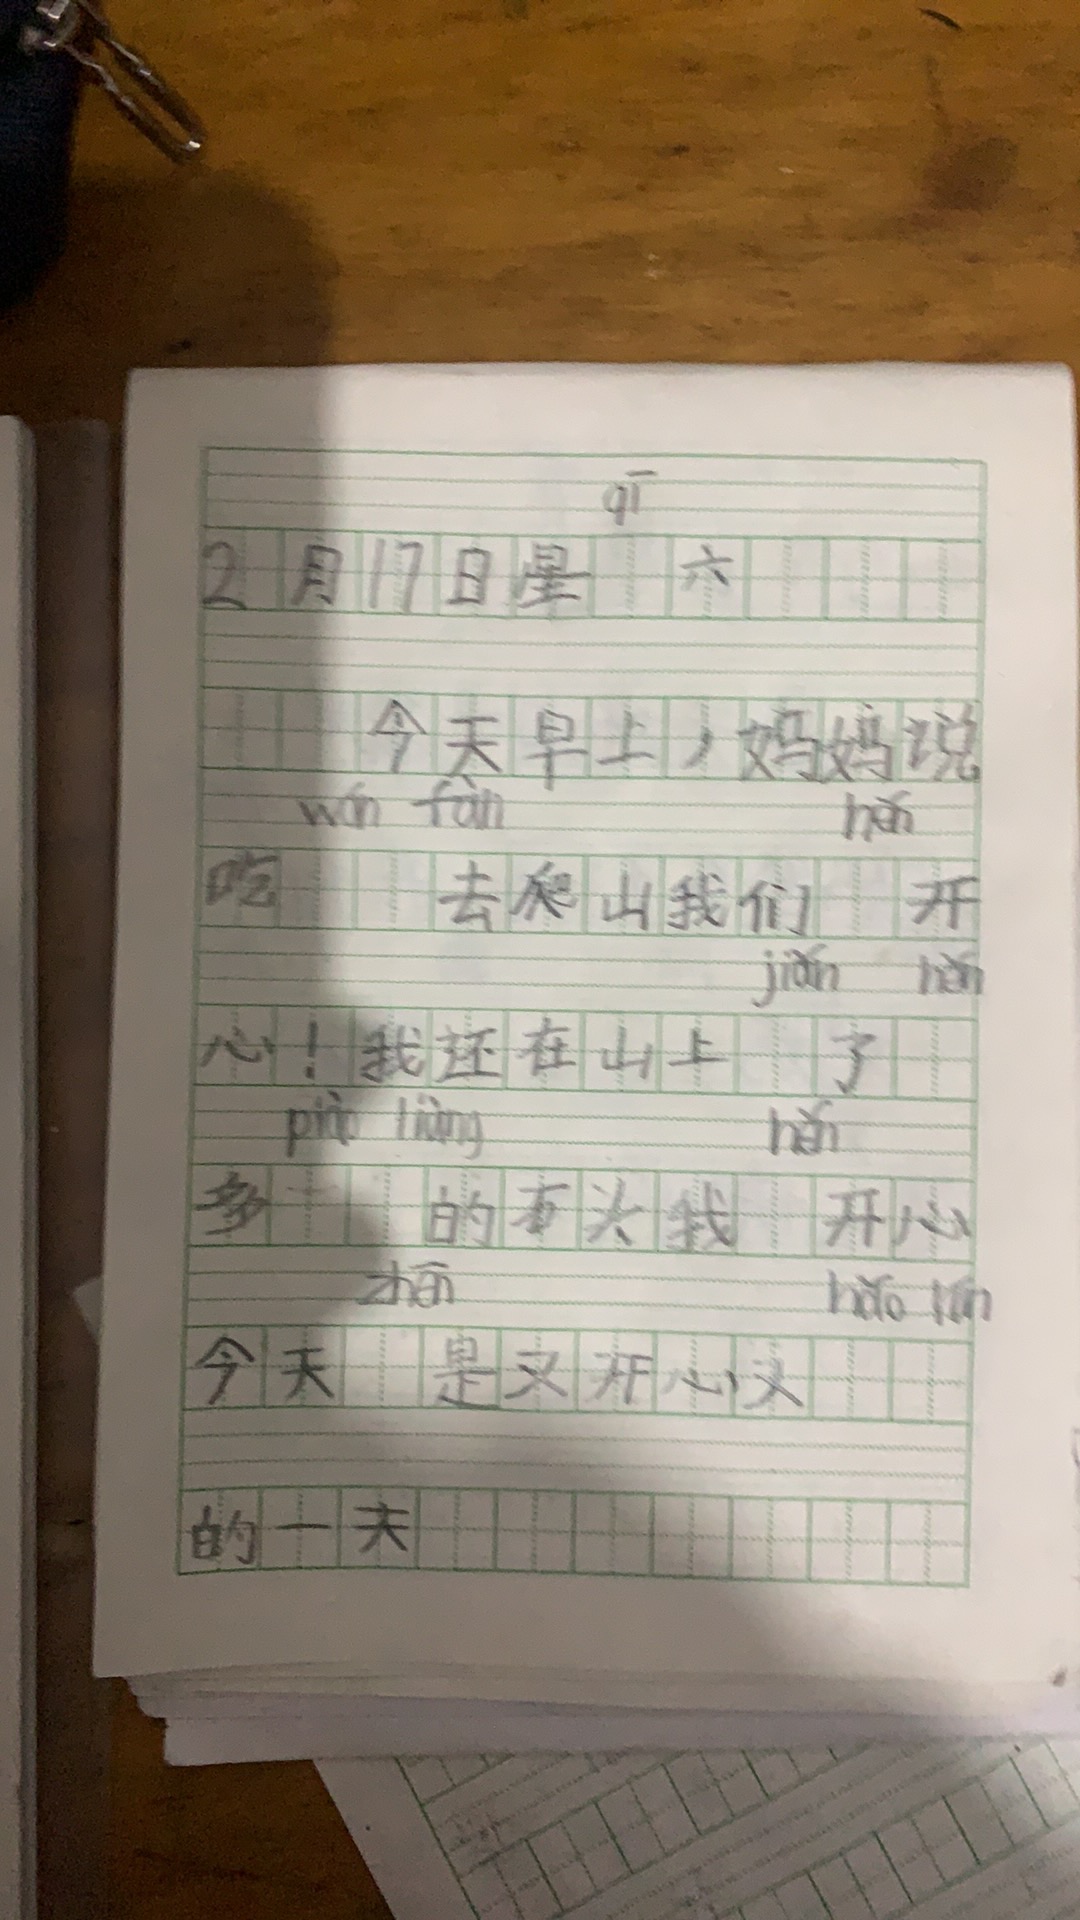 qī
2月17日星 六
今天早上，妈妈说
wǎn fàn hěn
吃 去爬山我们 开
jiǎn hěn
心！我还在山上 了
piào liàng hěn
多 的石头我 开心
zhēn hǎo lěi
今天 是又开心又
的一天